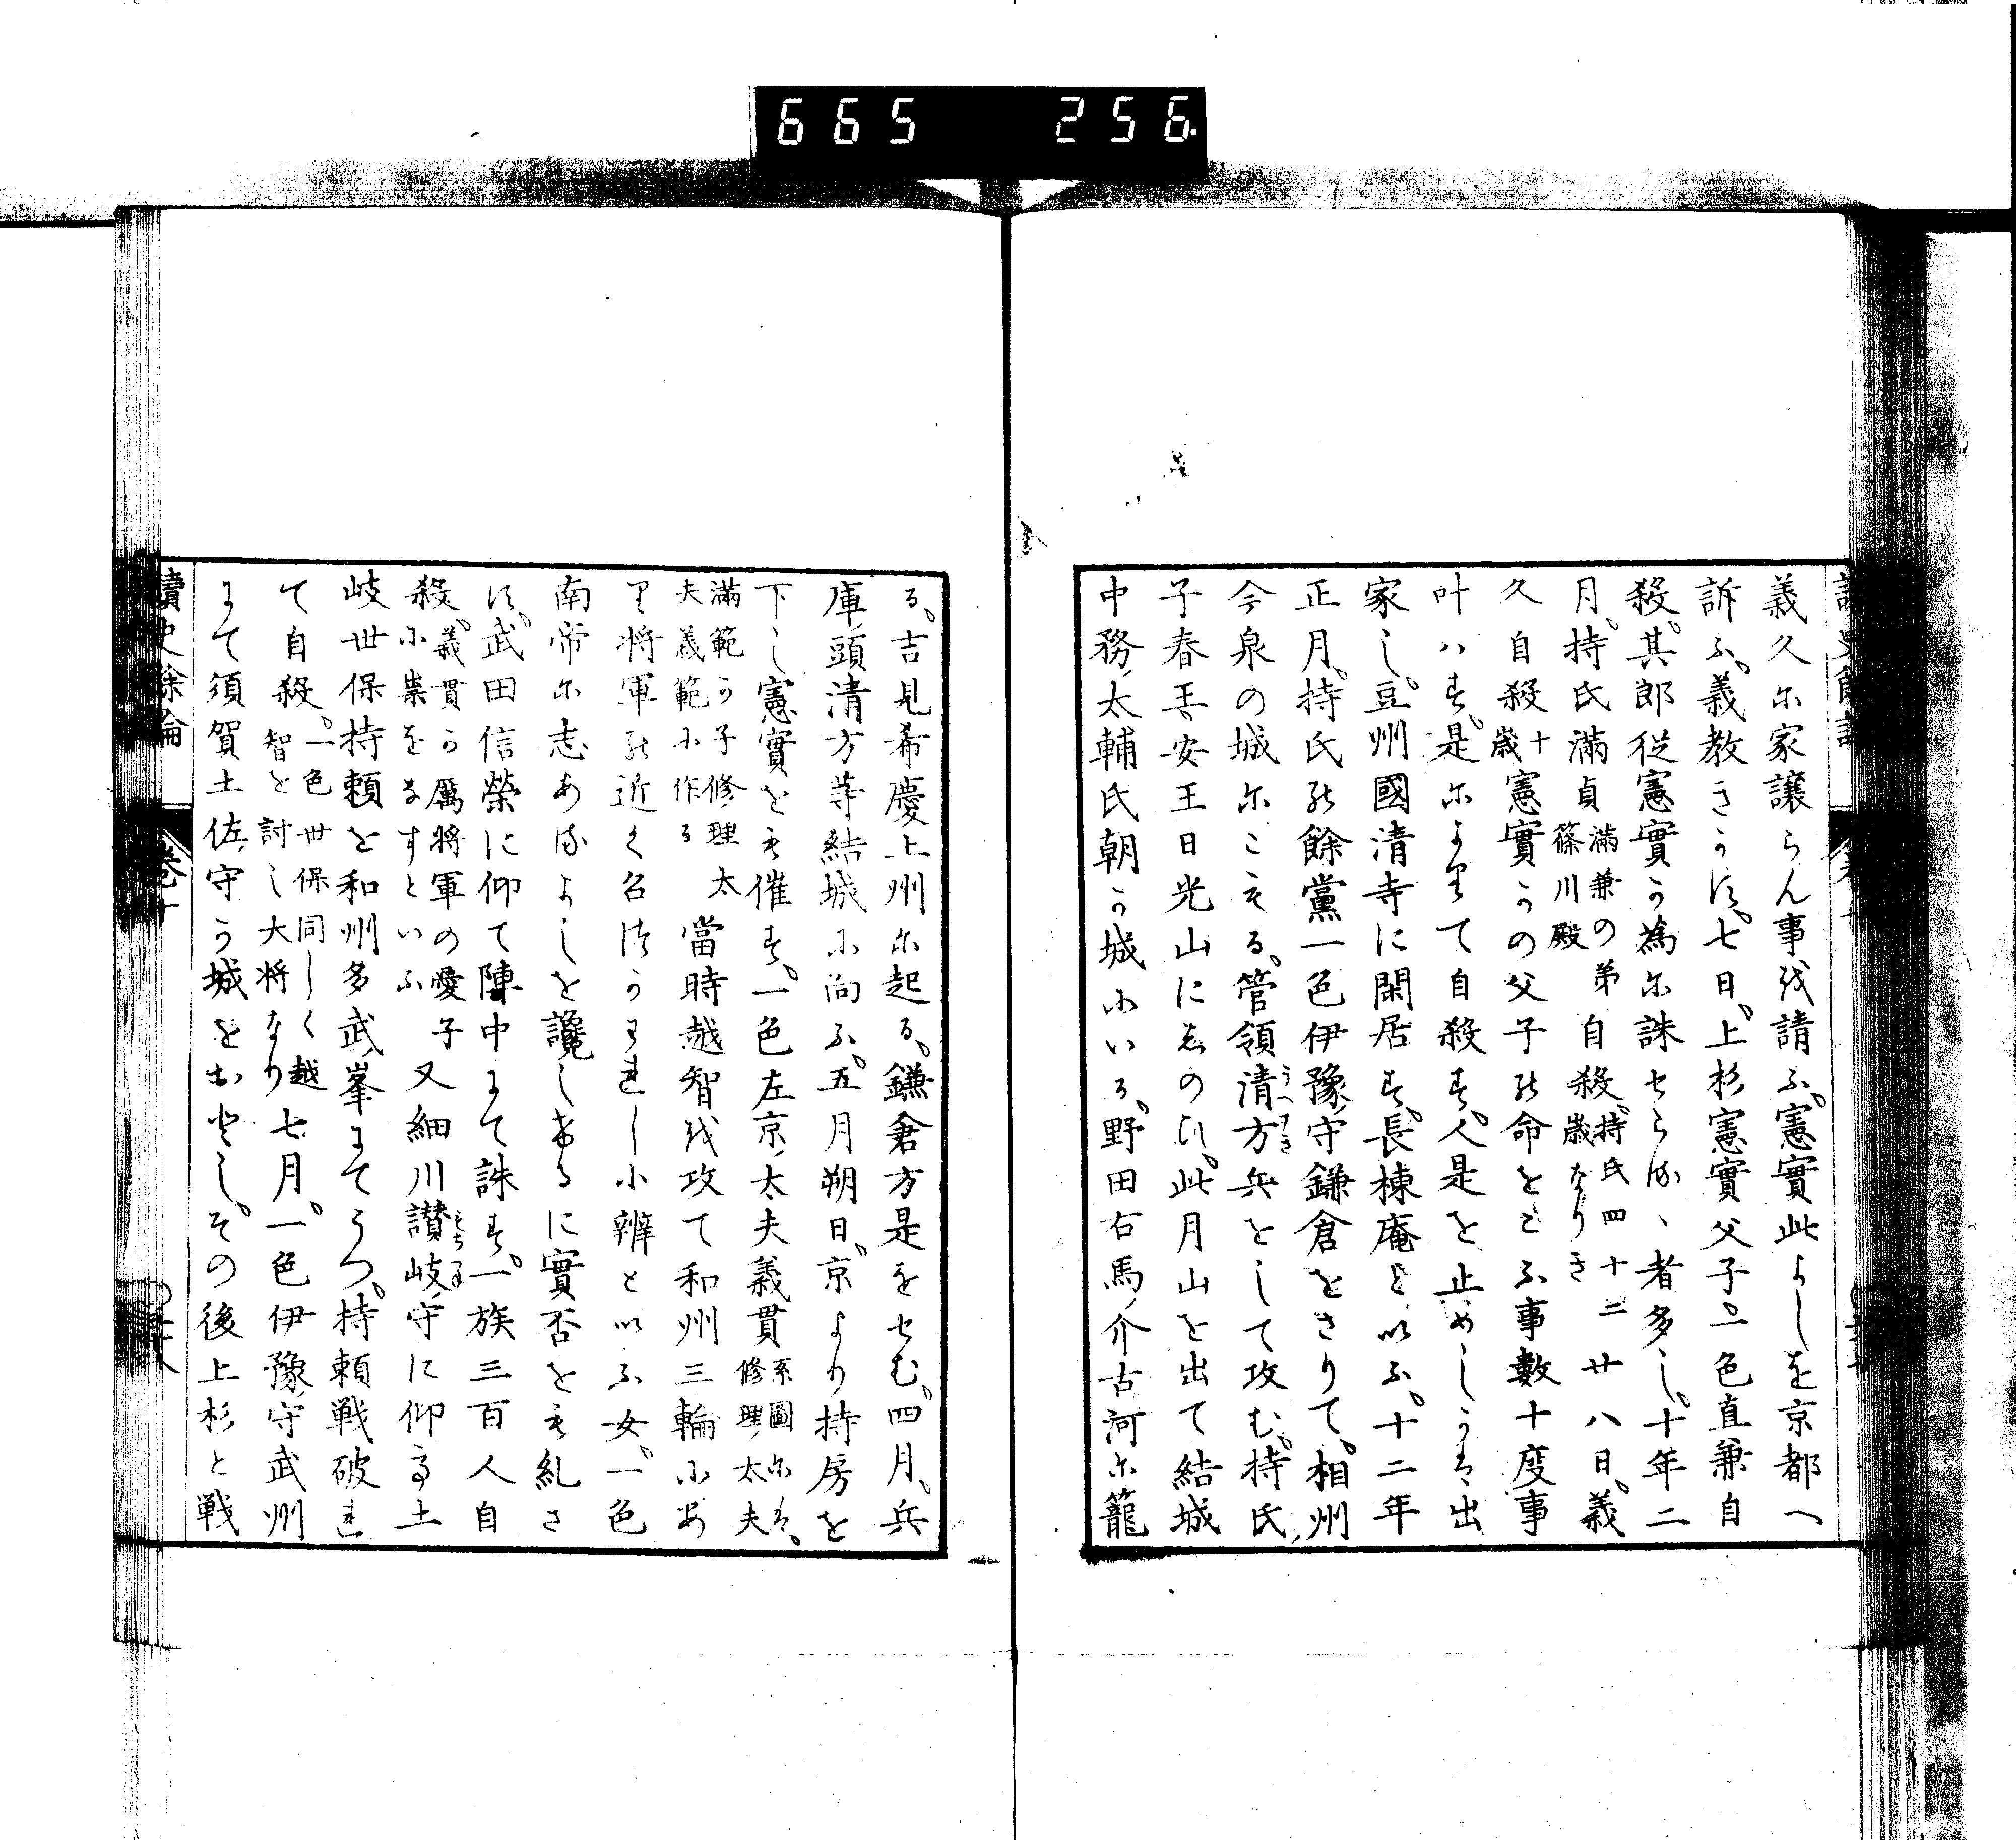 665 256.
義久に家譲らん事を請ふ。憲實此よしを京都へ
訴ふ。義教きかす。七日。上杉憲實父子。一色直兼自
殺。其郎従憲實か為に誅せらるゝ者多し。十年二
月。持氏滿貞滿兼の弟篠川殿自殺。持氏四十二歳なりき廿八日。義
久自殺十歳憲實かの父子の命をこふ事數十度事
叶ハす。是によりて自殺す。人是を止めしかは出
家し。豆州國清寺に閑居す。長棟庵と以ふ。十二年
正月。持氏の餘黨一色伊豫守鎌倉をさりて。相州
今泉の城にこもる。管領清方兵をして攻む。持氏
子春王安王日光山にしのひ。此月山を出て結城
中務太輔氏朝か城にいる。野田右馬介古河に籠
る。吉見希慶上州に起る。鎌倉方是をせむ。四月。兵
庫頭清方等結城に向ふ。五月朔日。京より持房を
下し憲實をも催す。一色左京太夫義貫系圖には。修理太夫
滿範の子修理太夫義範に作る當時越智を攻て和州三輪にあ
り将軍の近く召つかはれし小辨と以ふ女。一色
南帝に志あるよしを讒しけるに實否をも糺さ
す。武田信榮に仰て陣中にて誅す。一族三百人自
殺。義貫か厲将軍の愛子に祟をなすといふ又細川讃岐守に仰て土
岐世保持頼を和州多武峯にてうつ。持頼戦破れ
て自殺。一色世保同しく越智を討し大将なり七月。一色伊豫守武州
にて須賀土佐守か城をおとし。その後上杉と戦
讀史餘論 巻十